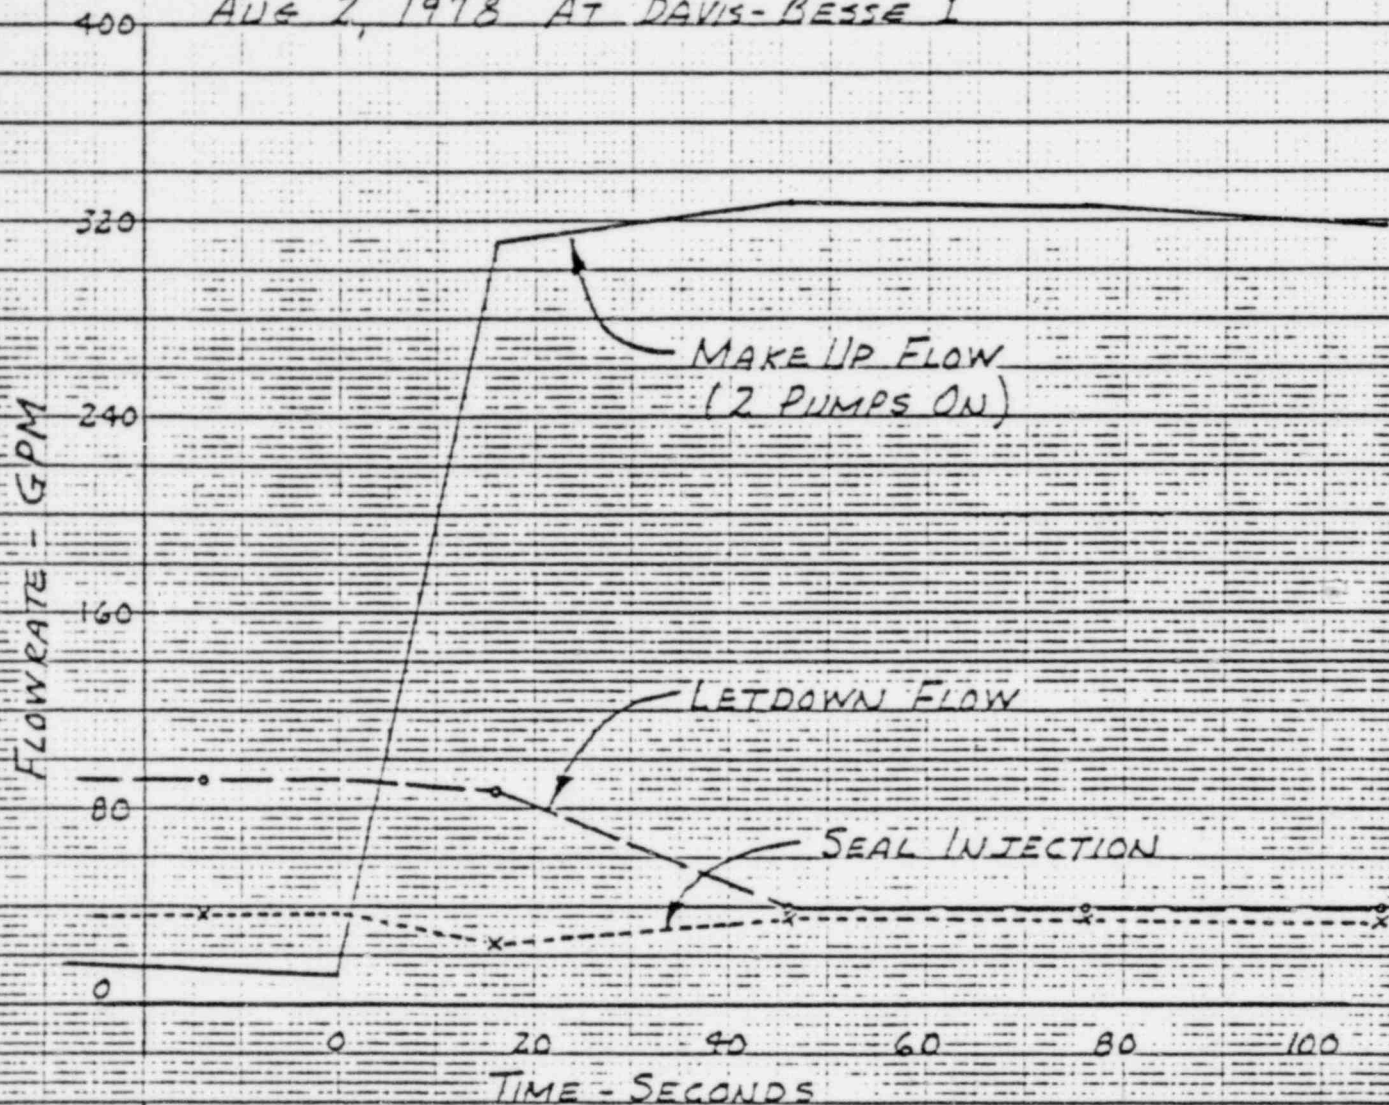 AUG 2, 1978 AT DAVIS-BESSE 1
400
320
240
160
80
0
FLOWRATE - GPM
MAKE UP FLOW
(2 PUMPS ON)
LETDOWN FLOW
SEAL INJECTION
0 20 40 60 80 100
TIME - SECONDS